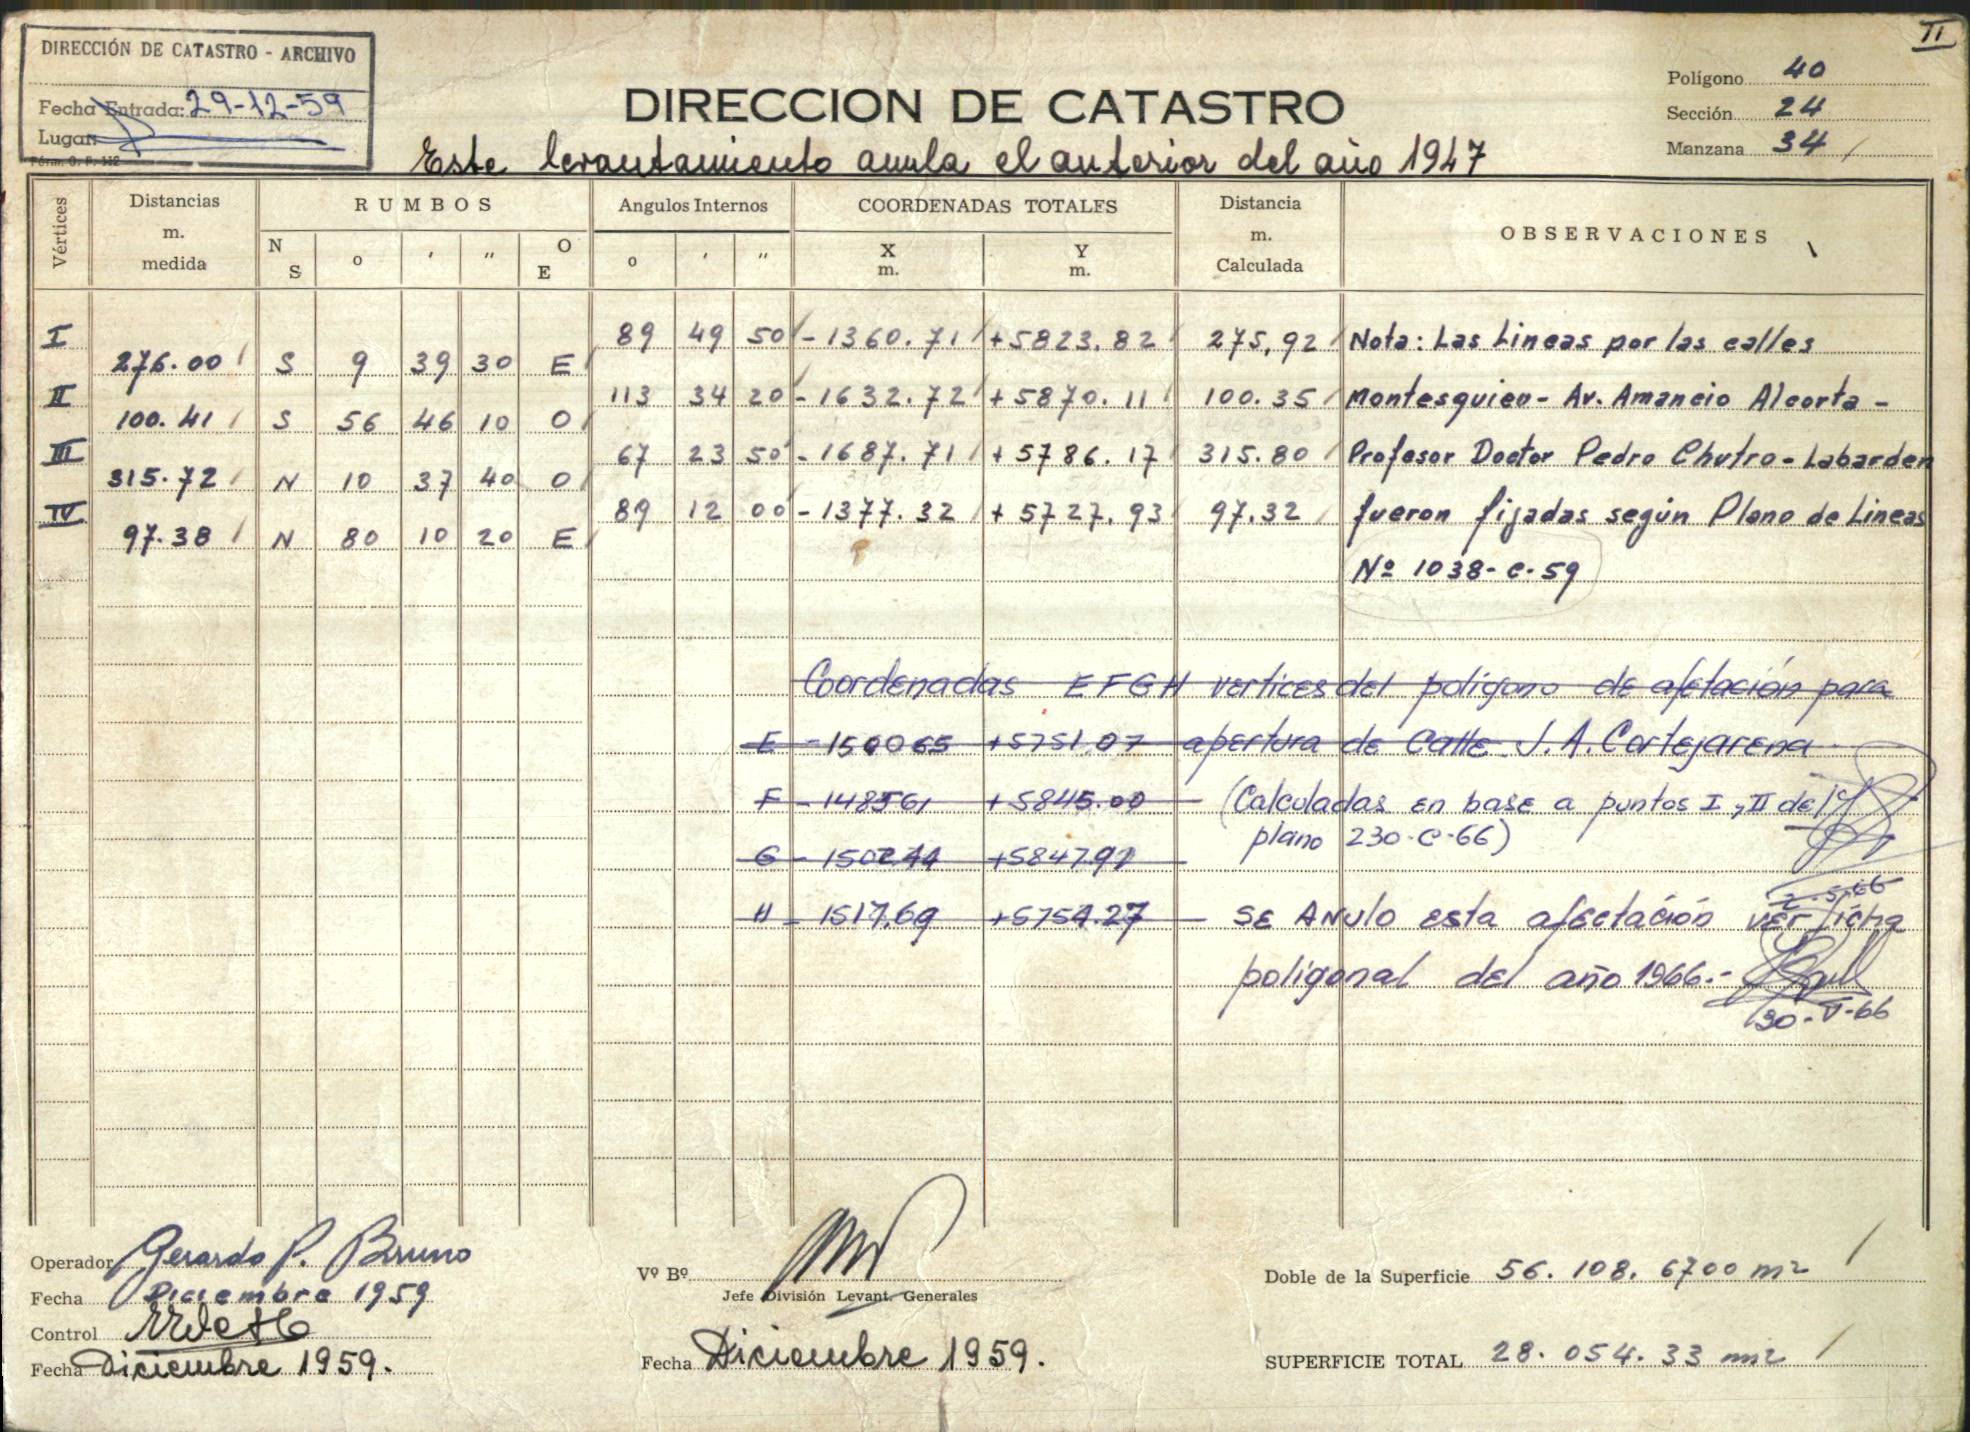 II
DIRECCIÓN DE CATASTRO - ARCHIVO
Fecha Entrada: 29-12-59
Lugar
Fórm. O. P. 112
DIRECCION DE CATASTRO
Este levantamiento anula el anterior del año 1947
Polígono 40
Sección 24
Manzana 34
Vértices
Distancias m. medida
RUMBOS
N S o ' " O E
Angulos Internos
o ' "
COORDENADAS TOTALES
X m. Y m.
Distancia m. Calculada
OBSERVACIONES
I 89 49 50 -1360.71 +5823.82 275,92 Nota: Las Lineas por las calles
276.00 S 9 39 30 E
II 113 34 20 -1632.72 +5870.11 100.35 Montesquieu- Av. Amancio Alcorta -
100.41 S 56 46 10 O
III 67 23 50 -1687.71 +5786.17 315.80 Profesor Doctor Pedro Chutro- Labarden
315.72 N 10 37 40 O
IV 89 12 00 -1377.32 +5727.93 97.32 fueron fijadas según Plano de Lineas
97.38 N 80 10 20 E
Nº 1038-C-59
Coordenadas EFGH vertices del poligono de afetación para
E -150065 +5751.07 apertura de Calle J.A. Cortejarena
F - +5845.00 (Calculadas en base a puntos I y II del
plano 230-C-66)
G - +5847.91
2-5-66
H - 1517.69 +5754.27 SE ANULO esta afectación ver ficha
poligonal del año 1966.-
30-V-66
Operador Gerardo P. Bruno
Fecha Diciembre 1959
Control
Fecha Diciembre 1959.
Vº Bº
Jefe División Levant. Generales
Fecha Diciembre 1959.
Doble de la Superficie 56.108.6700 m2
SUPERFICIE TOTAL 28.054.33 m2